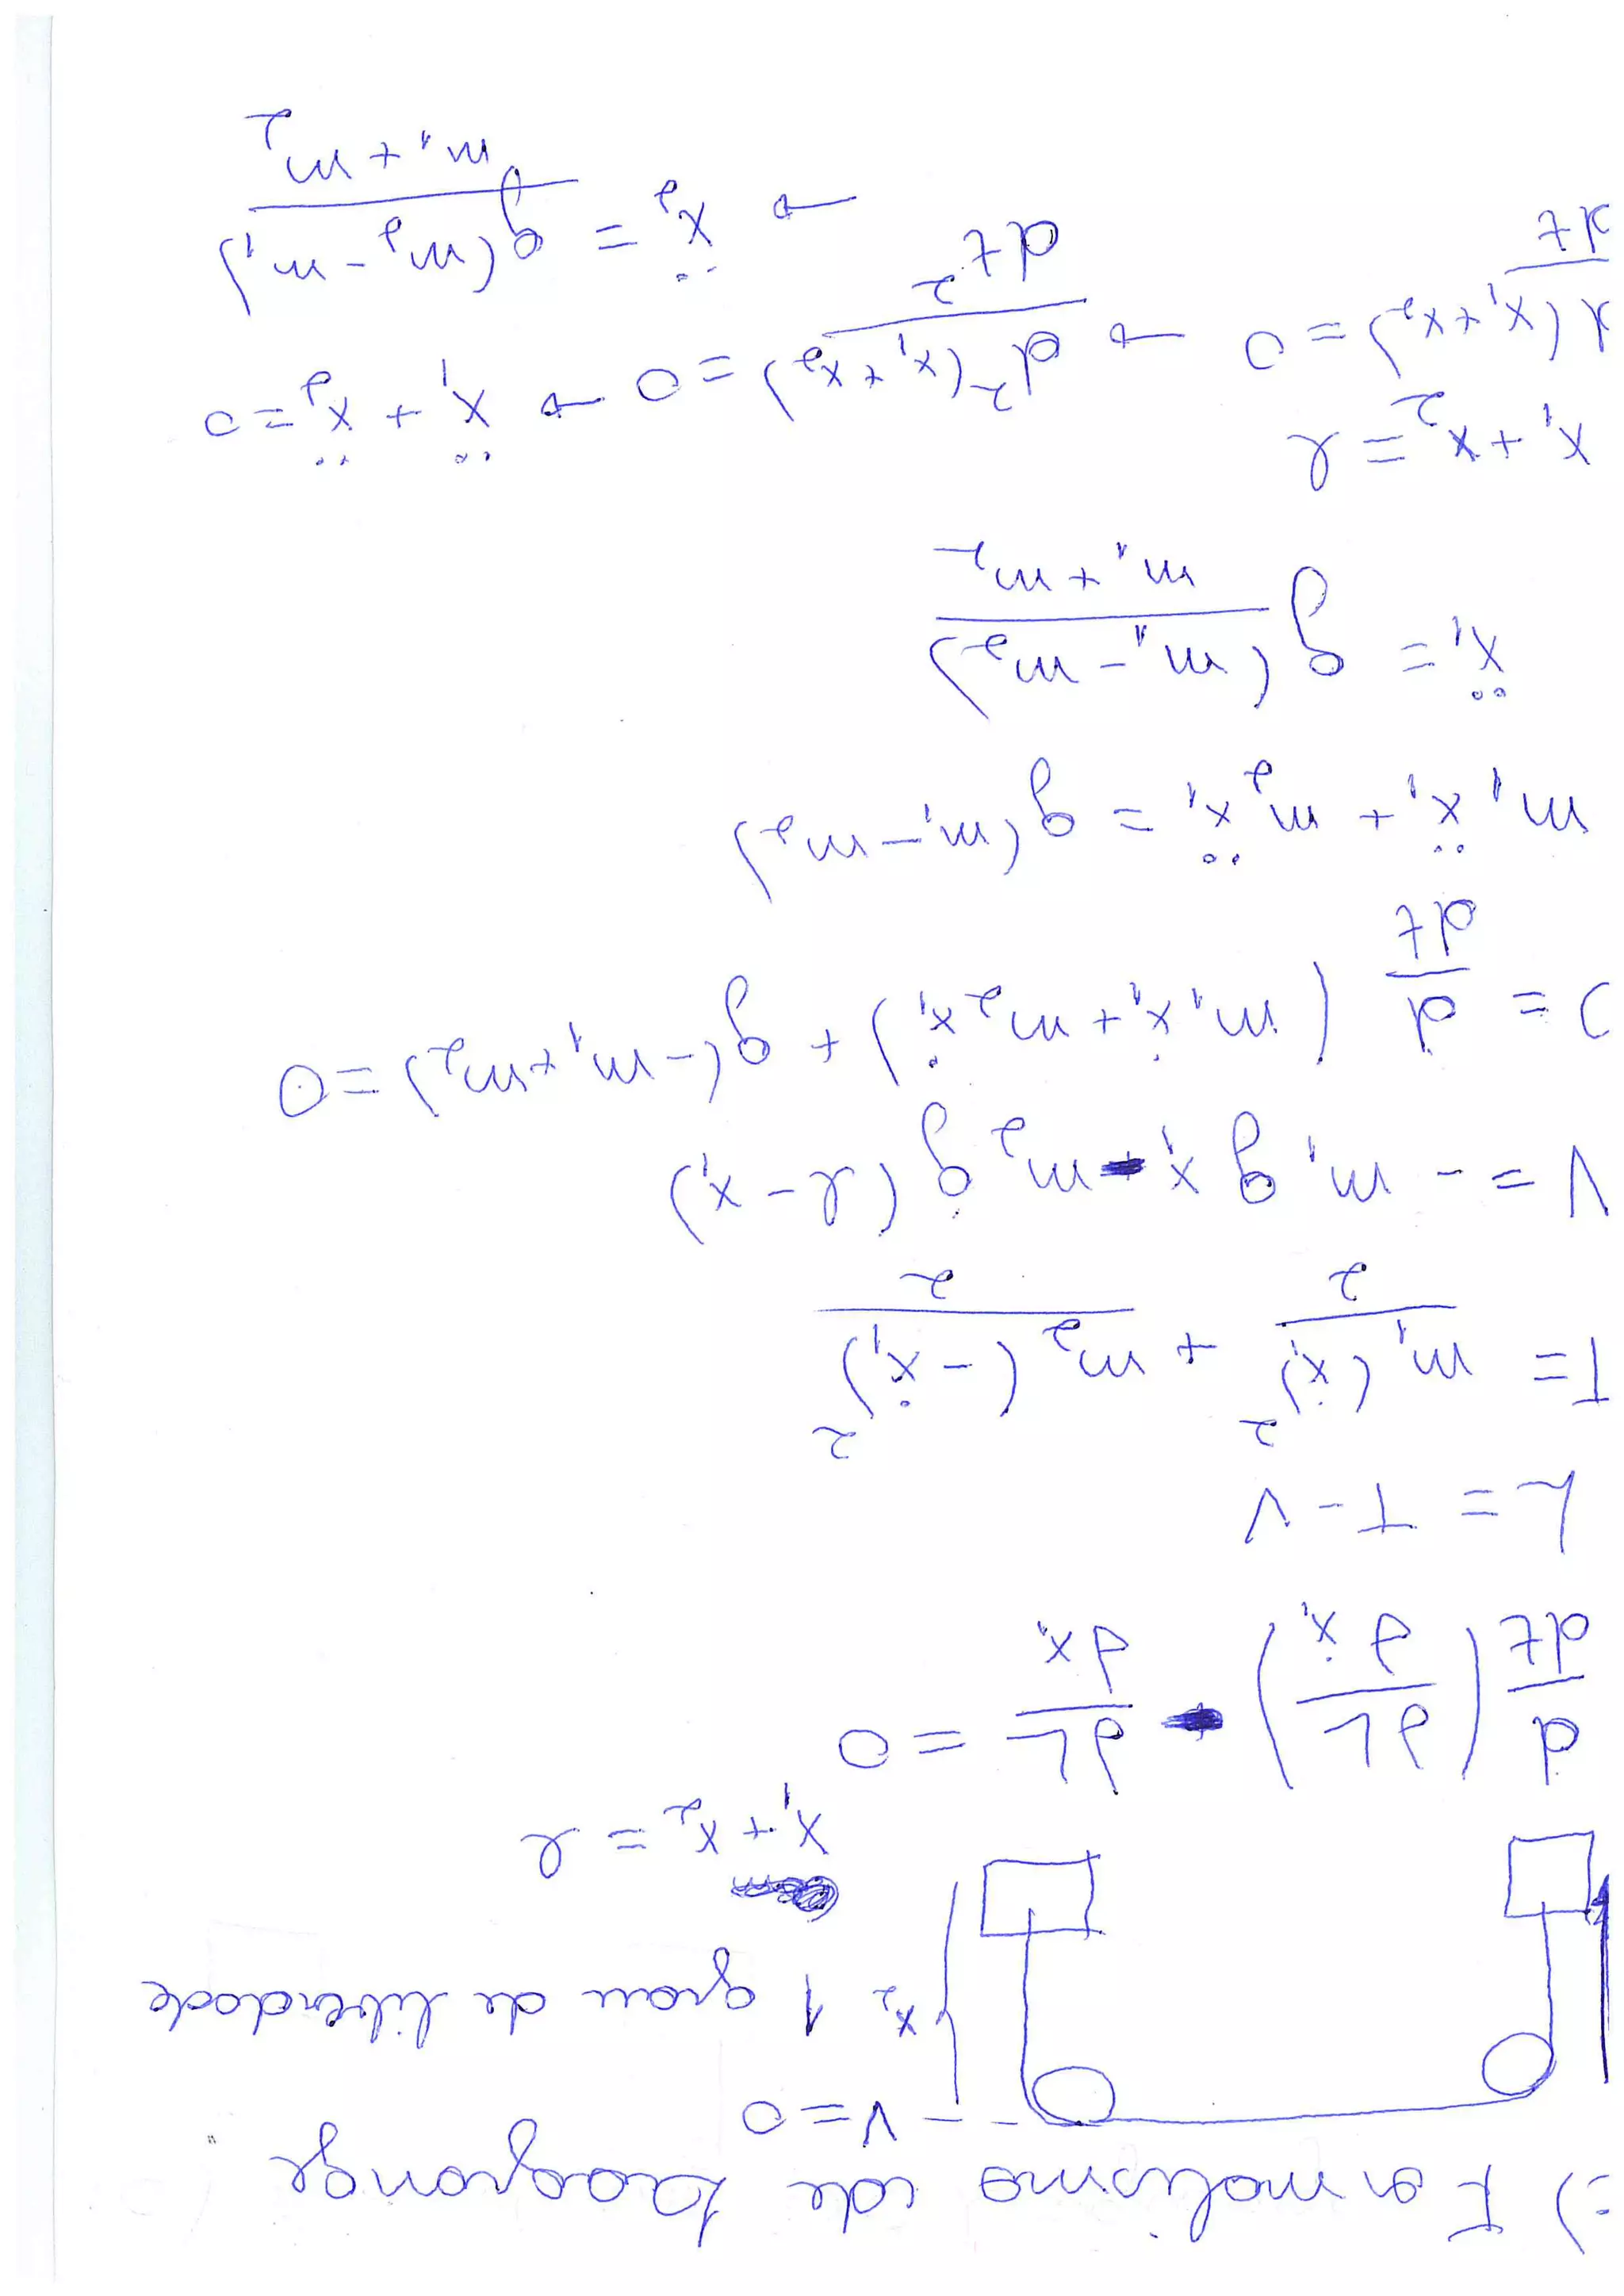 =) Formalismo de Lagrange
-- V=0
x₂ 1 grau de liberdade
x₁+x₂=γ
d/dt (∂L/∂ẋ₁) - ∂L/∂x₁ = 0
L = T - V
T = m₁(ẋ₁)²/2 + m₂(-ẋ₁)²/2
V = - m₁ g x₁ - m₂ g (γ-x₁)
0 = d/dt (m₁ẋ₁ + m₂ẋ₁) + g(-m₁+m₂) = 0
m₁ẍ₁ + m₂ẍ₁ = g(m₁-m₂)
ẍ₁ = g(m₁-m₂)/m₁+m₂
x₁+x₂=γ
d(x₁+x₂)/dt = 0 → d²(x₁+x₂)/dt² = 0 → ẍ₁ + ẍ₂ = 0
→ ẍ₂ = g(m₂-m₁)/m₁+m₂